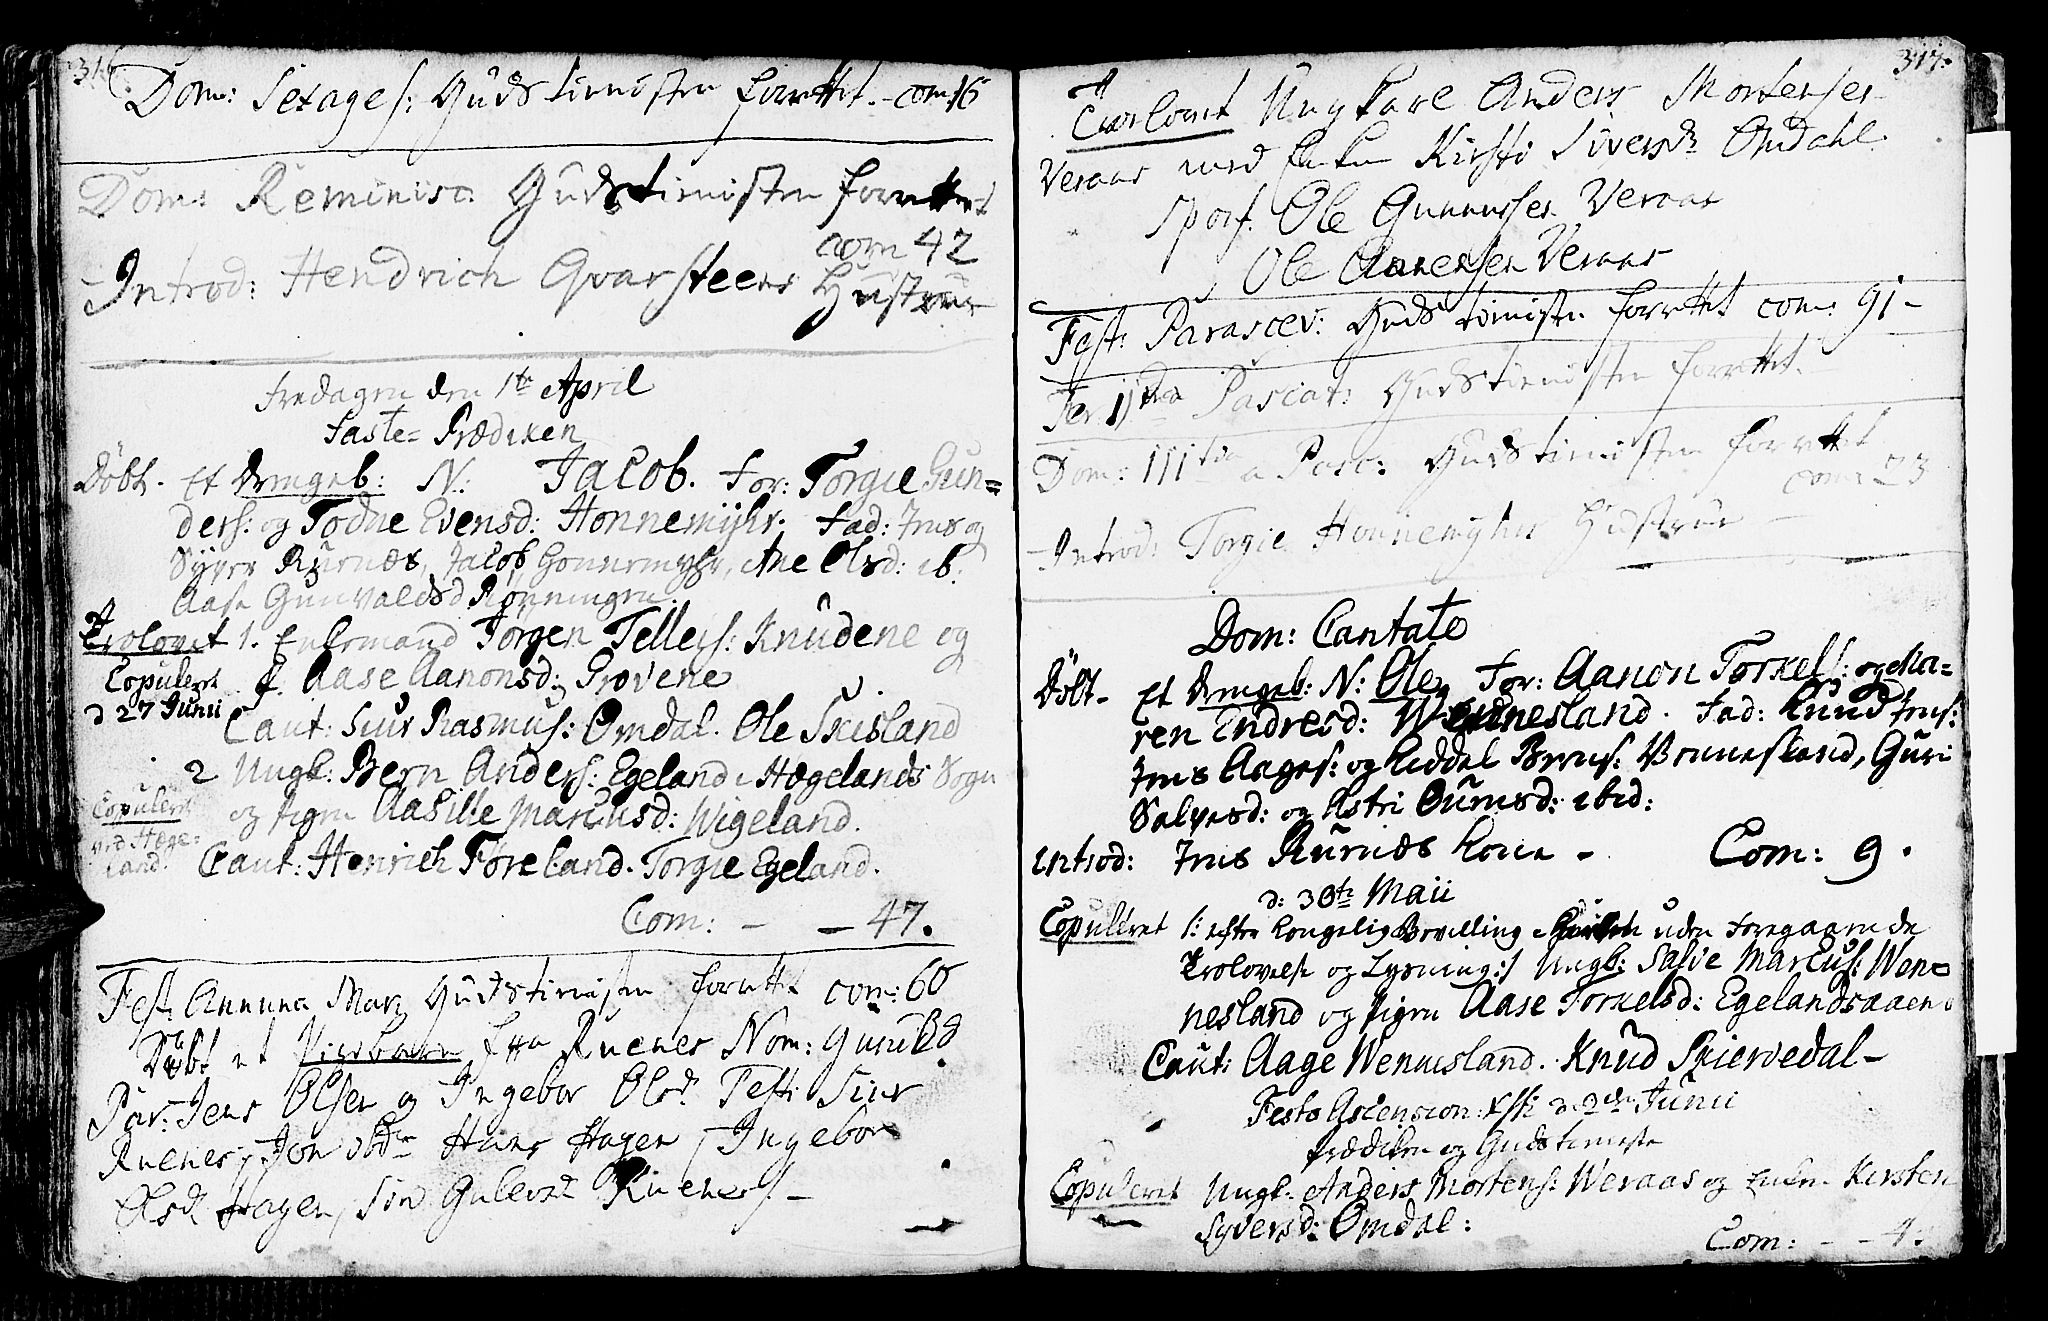 316.
Dom: Sexages: Gudstienisten forrettet. com 16
Dom: Reminisc: Gudstienisten forrettet
com 42
Introd: Hendrich Qvarsteens Hustrue
Fredagen den 1te April
Faste= Prædiken
Döbt. Et drengeb: N: Jacob. For: Torgie Gun=
ders: og Todne Evensd: Honnemyhr. Fad: Jens og
Syver Ruenæs, Jacob Honnemyhr, Ane Olsd: ib:
Aase Gunvaldsd Rönningen.
Trolovet 1. Enkemand Jörgen Tellefs: Knudene og
Copuleret P. Aase Aanonsd: Grovene
d 27 Junii
Caut: Siur Rasmus: Omdal. Ole Skisland
2 Ungk: Bern Anders: Egeland i Hægelands Sogn
Copuleret og Pigen Aasille Marcusd: Wigeland.
ved Hæge=
land. Caut: Henrich Föreland. Torgie Egeland.
Com: - - 47.
Fest: Annunc Mar: Gudstienisten forrettet com: 60
Döbt et Pigebarn fra Ruenes Nom: Guruld
Par: Jens Olsen og Ingebor Olsd. Test: Siur
Ruenes, Jon ibdm Hans Hagen, Ingebor
Olsd Hagen, Siri Gulevsd Ruenes. -
317.
Troloveet Ungkarl Anders Mortensen
Veraas med Enken Kirsti Siversdr Omdahl
spons. Ole Gunnersen Veraas
Ole Aanensen Veraas
Fest: Parascev: Gudstienisten forrettet com: 91 -
Fer: IIda Pascat: Gudstienisten forrettet.
Dom: IIItia a Pasc: Gudstienisten forrettet
com: 23
Introd: Torgie Honnemyhrs Hustrue
Dom: Cantate
Döbt. Et drengeb: N: Ole, For: Aanon Torkels: og Ma=
ren Endresd: Wennesland. Fad: Knud Jens:
Jens Aages: og Kiddel Berns: Vennesland, Guri
Salvesd: og Astri Gumsd: ibid:
Introd: Jens Ruenæs Kone - Com: 9.
d: 30te Maii
Copuleret /: efter Kongelig Bevilling uden Foregaaende
Trolovelse og Lysning:/ Ungk: Salve Marcus: Wen=
nesland og Pigen Aase Torkelsd: Egelandsaaen.
Caut: Aage Wennesland. Knud Skiervedal -
Festo Ascension: Xsti d. 2den Junii
Prædiken og Gudstieneste
Copuleret Ungk: Anders Mortens: Weraas og Enken Kirsten
Syversd: Omdal:
Com: - - 4.